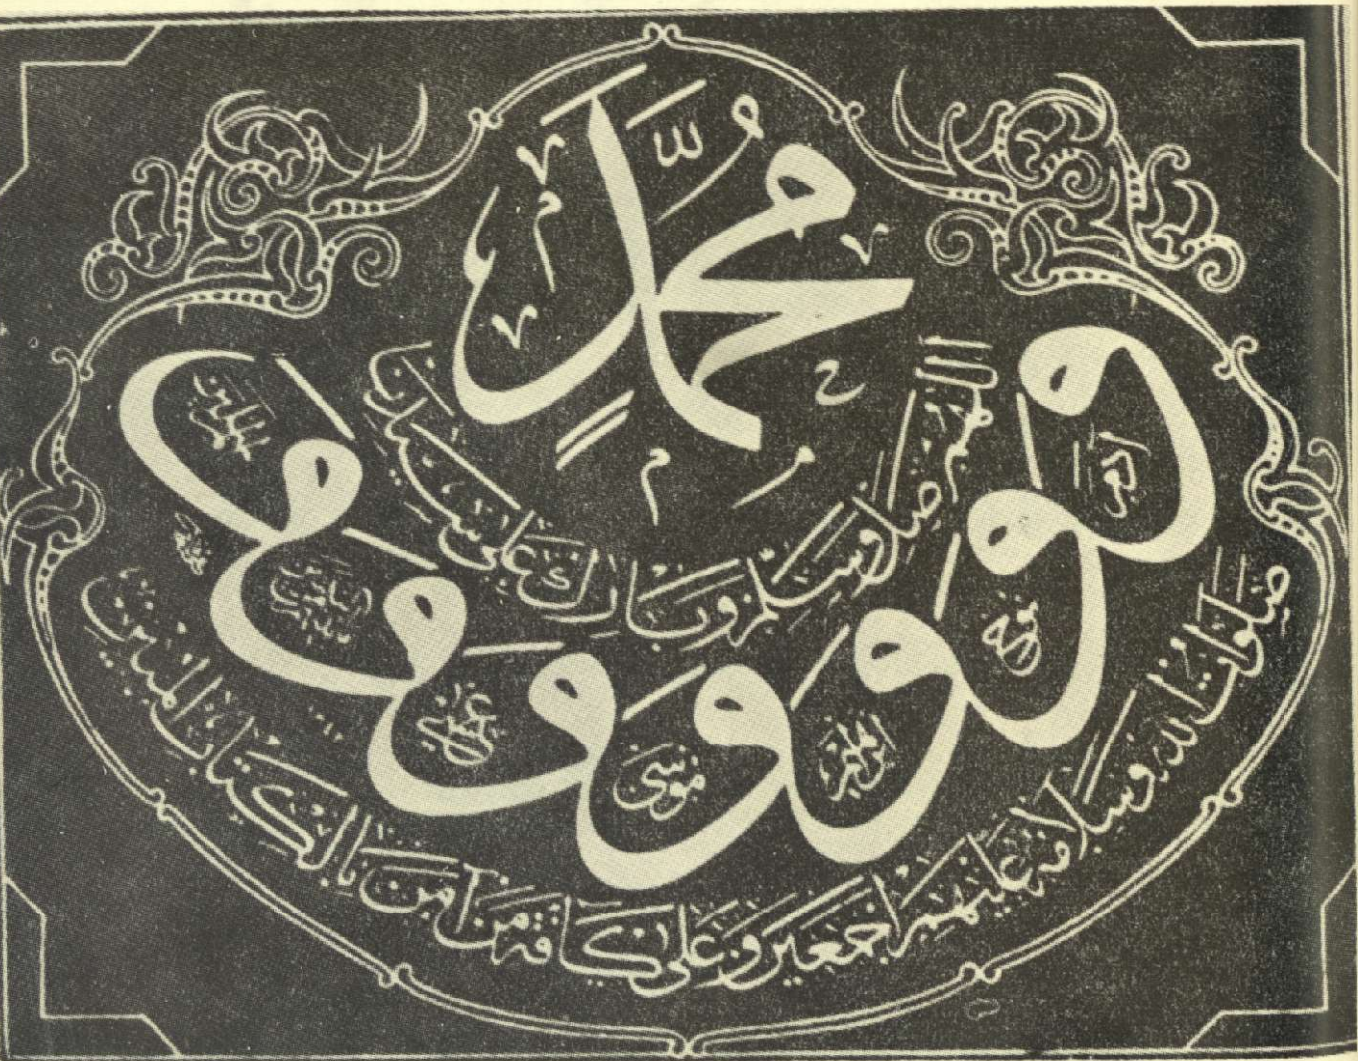 مُحَمَّدٍ
اللهم صل وسلم وبارك على سيدنا
و و و و و و و
آدم
نوح
ابراهيم
موسى
عيسى
صلوات الله وسلامه عليهم اجمعين وعلى كافة من آمن بالكتاب المبين